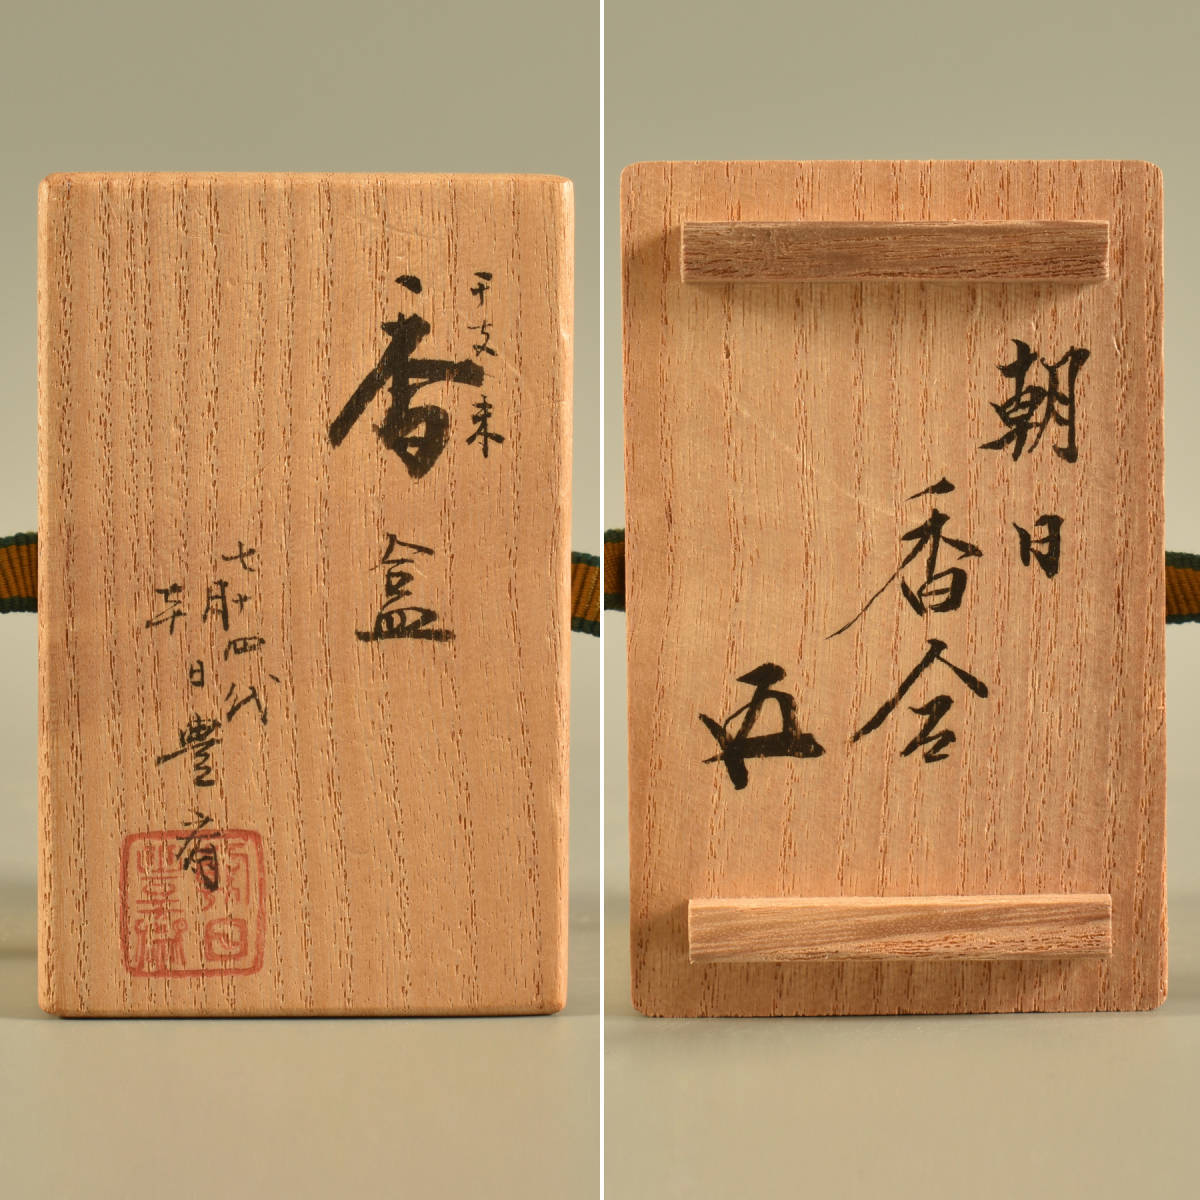 干支 未
香盒
十四代
朝日豊斎
朝日
香合